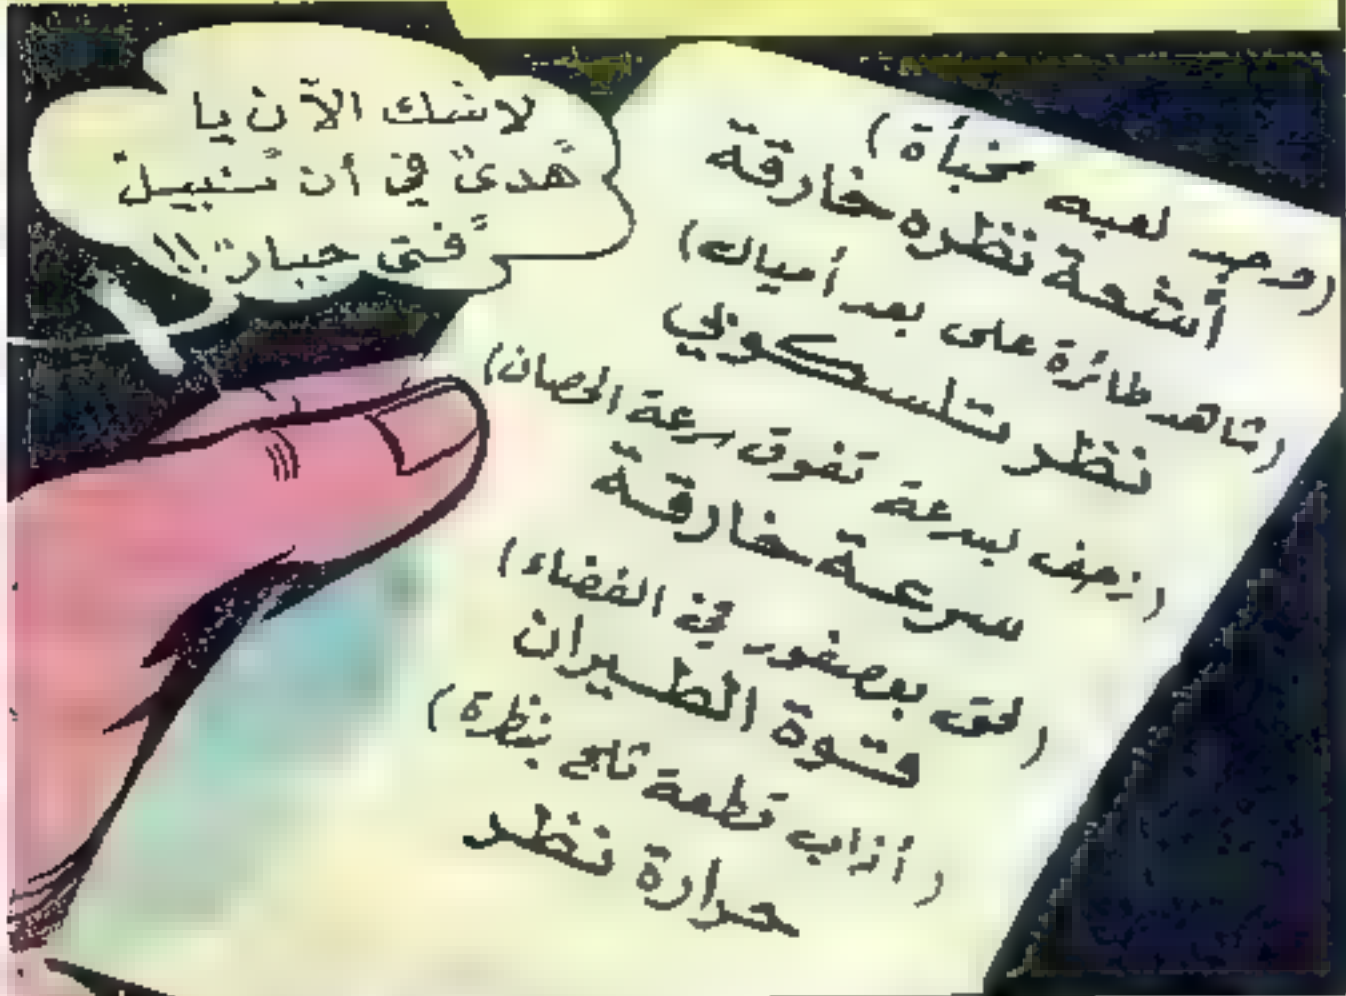 لاشك الآن يا
"هدى" في أن "نبيل"
"فتى جبار"!!
(وجد لعبه مخبأة)
أشعة نظره خارقة
(شاهد طائرة على بعد أميال)
نظر تلسكوبي
(زحف بسرعة تفوق سرعة الحصان)
سرعة خارقة
(لحق بعصفور في الفضاء)
قوة الطيران
(أذاب قطعة ثلج بنظرة)
حرارة نظر